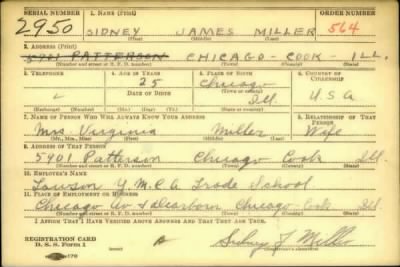 SERIAL NUMBER 1. NAME (Print) ORDER NUMBER
2950 SIDNEY JAMES MILLER 564
(First) (Middle) (Last)
2. ADDRESS (Print)
5901 PATTERSON CHICAGO - COOK ILL.
(Number and street or R. F. D. number) (Town) (County) (State)
3. TELEPHONE 4. AGE IN YEARS 5. PLACE OF BIRTH 6. COUNTRY OF CITIZENSHIP
25 Chicago
DATE OF BIRTH (Town or county)
Ill. U.S.A
(Exchange) (Number) (Mo.) (Day) (Yr.) (State or country)
7. NAME OF PERSON WHO WILL ALWAYS KNOW YOUR ADDRESS 8. RELATIONSHIP OF THAT PERSON
Mrs. Virginia Miller Wife
(Mr., Mrs., Miss) (First) (Middle) (Last)
9. ADDRESS OF THAT PERSON
5901 Patterson Chicago Cook Ill.
(Number and street or R. F. D. number) (Town) (County) (State)
10. EMPLOYER'S NAME
Lawson Y.M.C.A Trade School
11. PLACE OF EMPLOYMENT OR BUSINESS
Chicago Av + Dearborn Chicago - Cook Ill.
(Number and street or R. F. D. number) (Town) (County) (State)
I AFFIRM THAT I HAVE VERIFIED ABOVE ANSWERS AND THAT THEY ARE TRUE.
REGISTRATION CARD
D. S. S. Form 1 Sidney J Miller